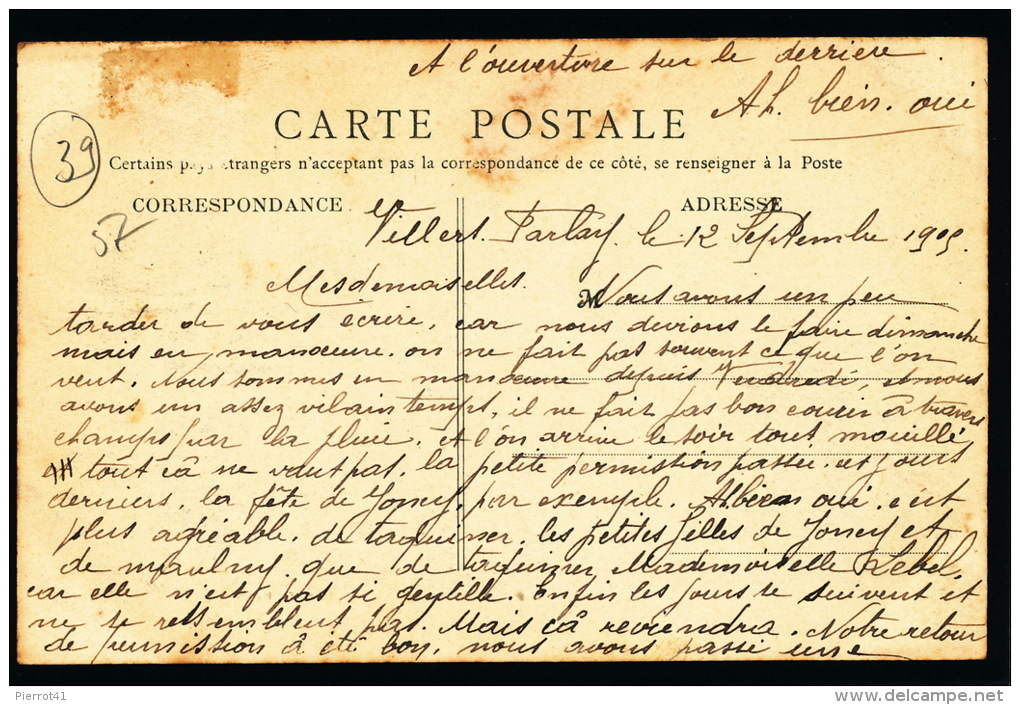 A l'ouverture sur le derriere.
Ah. bien. oui
CARTE POSTALE
39
Certains pays étrangers n'acceptant pas la correspondance de ce côté, se renseigner à la Poste
CORRESPONDANCE
ADRESSE
57
Villers. Farlay. le 12 Septembre 1905.
Mesdemoiselles. Nous avons un peu
tarder de vous écrire, car nous devions le faire dimanche
mais en manœuvre. on ne fait pas souvent ce que l'on
veut. Nous sommes en manœuvre depuis Vendredi, et nous
avons un assez vilain temps, il ne fait pas bon courir à travers
champs par la pluie, et l'on arrive le soir tout mouillé,
tout cà ne vaut pas. la petite permission passée. ces jours
derniers, la fête de Joney, par exemple. Ah bien oui, c'est
plus agréable. de taquiner. les petites filles de Joney et
de maulny. que de taquiner Mademoiselle Lebel,
car elle n'est pas si gentille. Enfin les jours se suivent et
ne se ressemblent pas. Mais cà reviendra. Notre retour
de permission à été bon, nous avons passé une
Pierrot41
http://www.delcampe.net